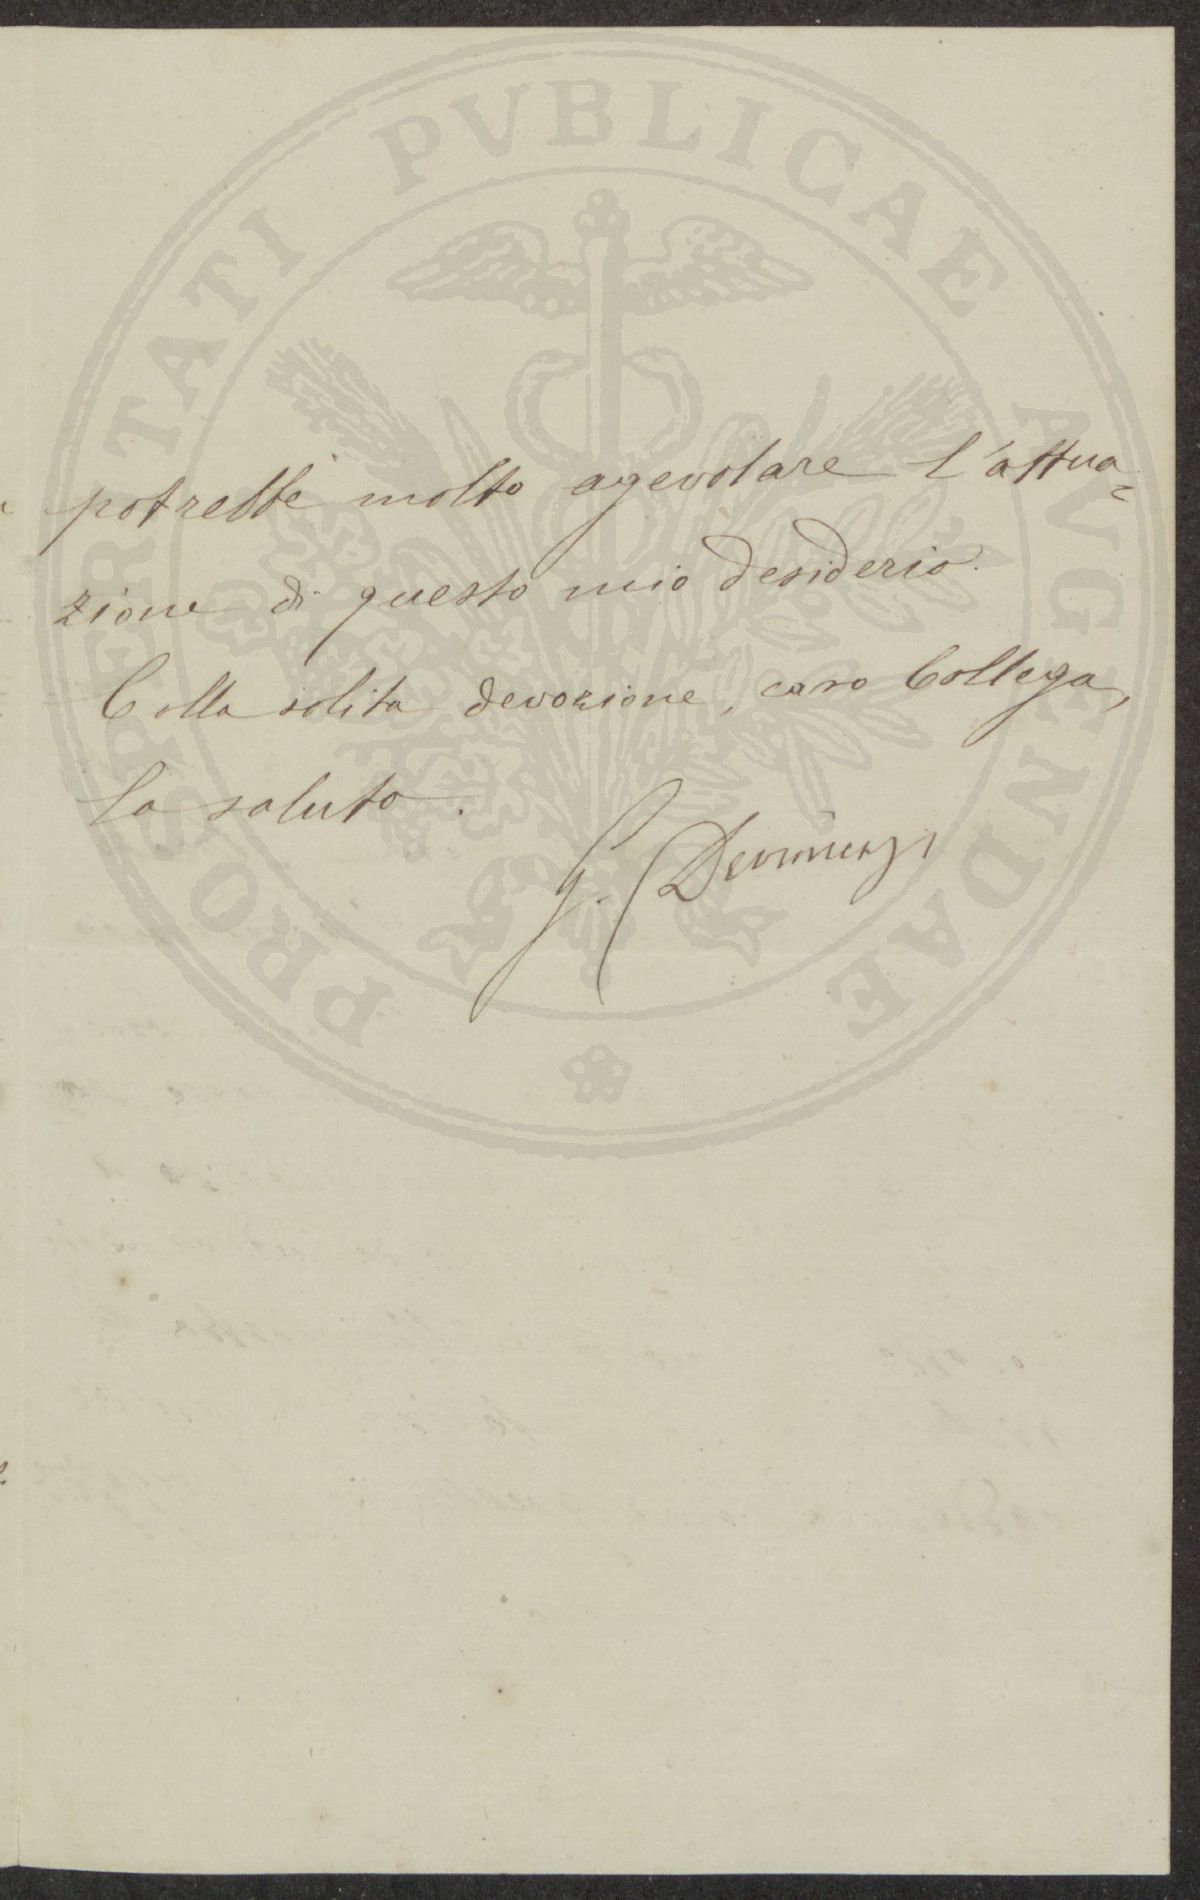 PROSPERITATI PVBLICAE AVGENDAE
potrebbe molto agevolare l'attua=
zione di questo mio desiderio.
Colla solita devozione, caro Collega,
la saluto.
G. Devincenzi